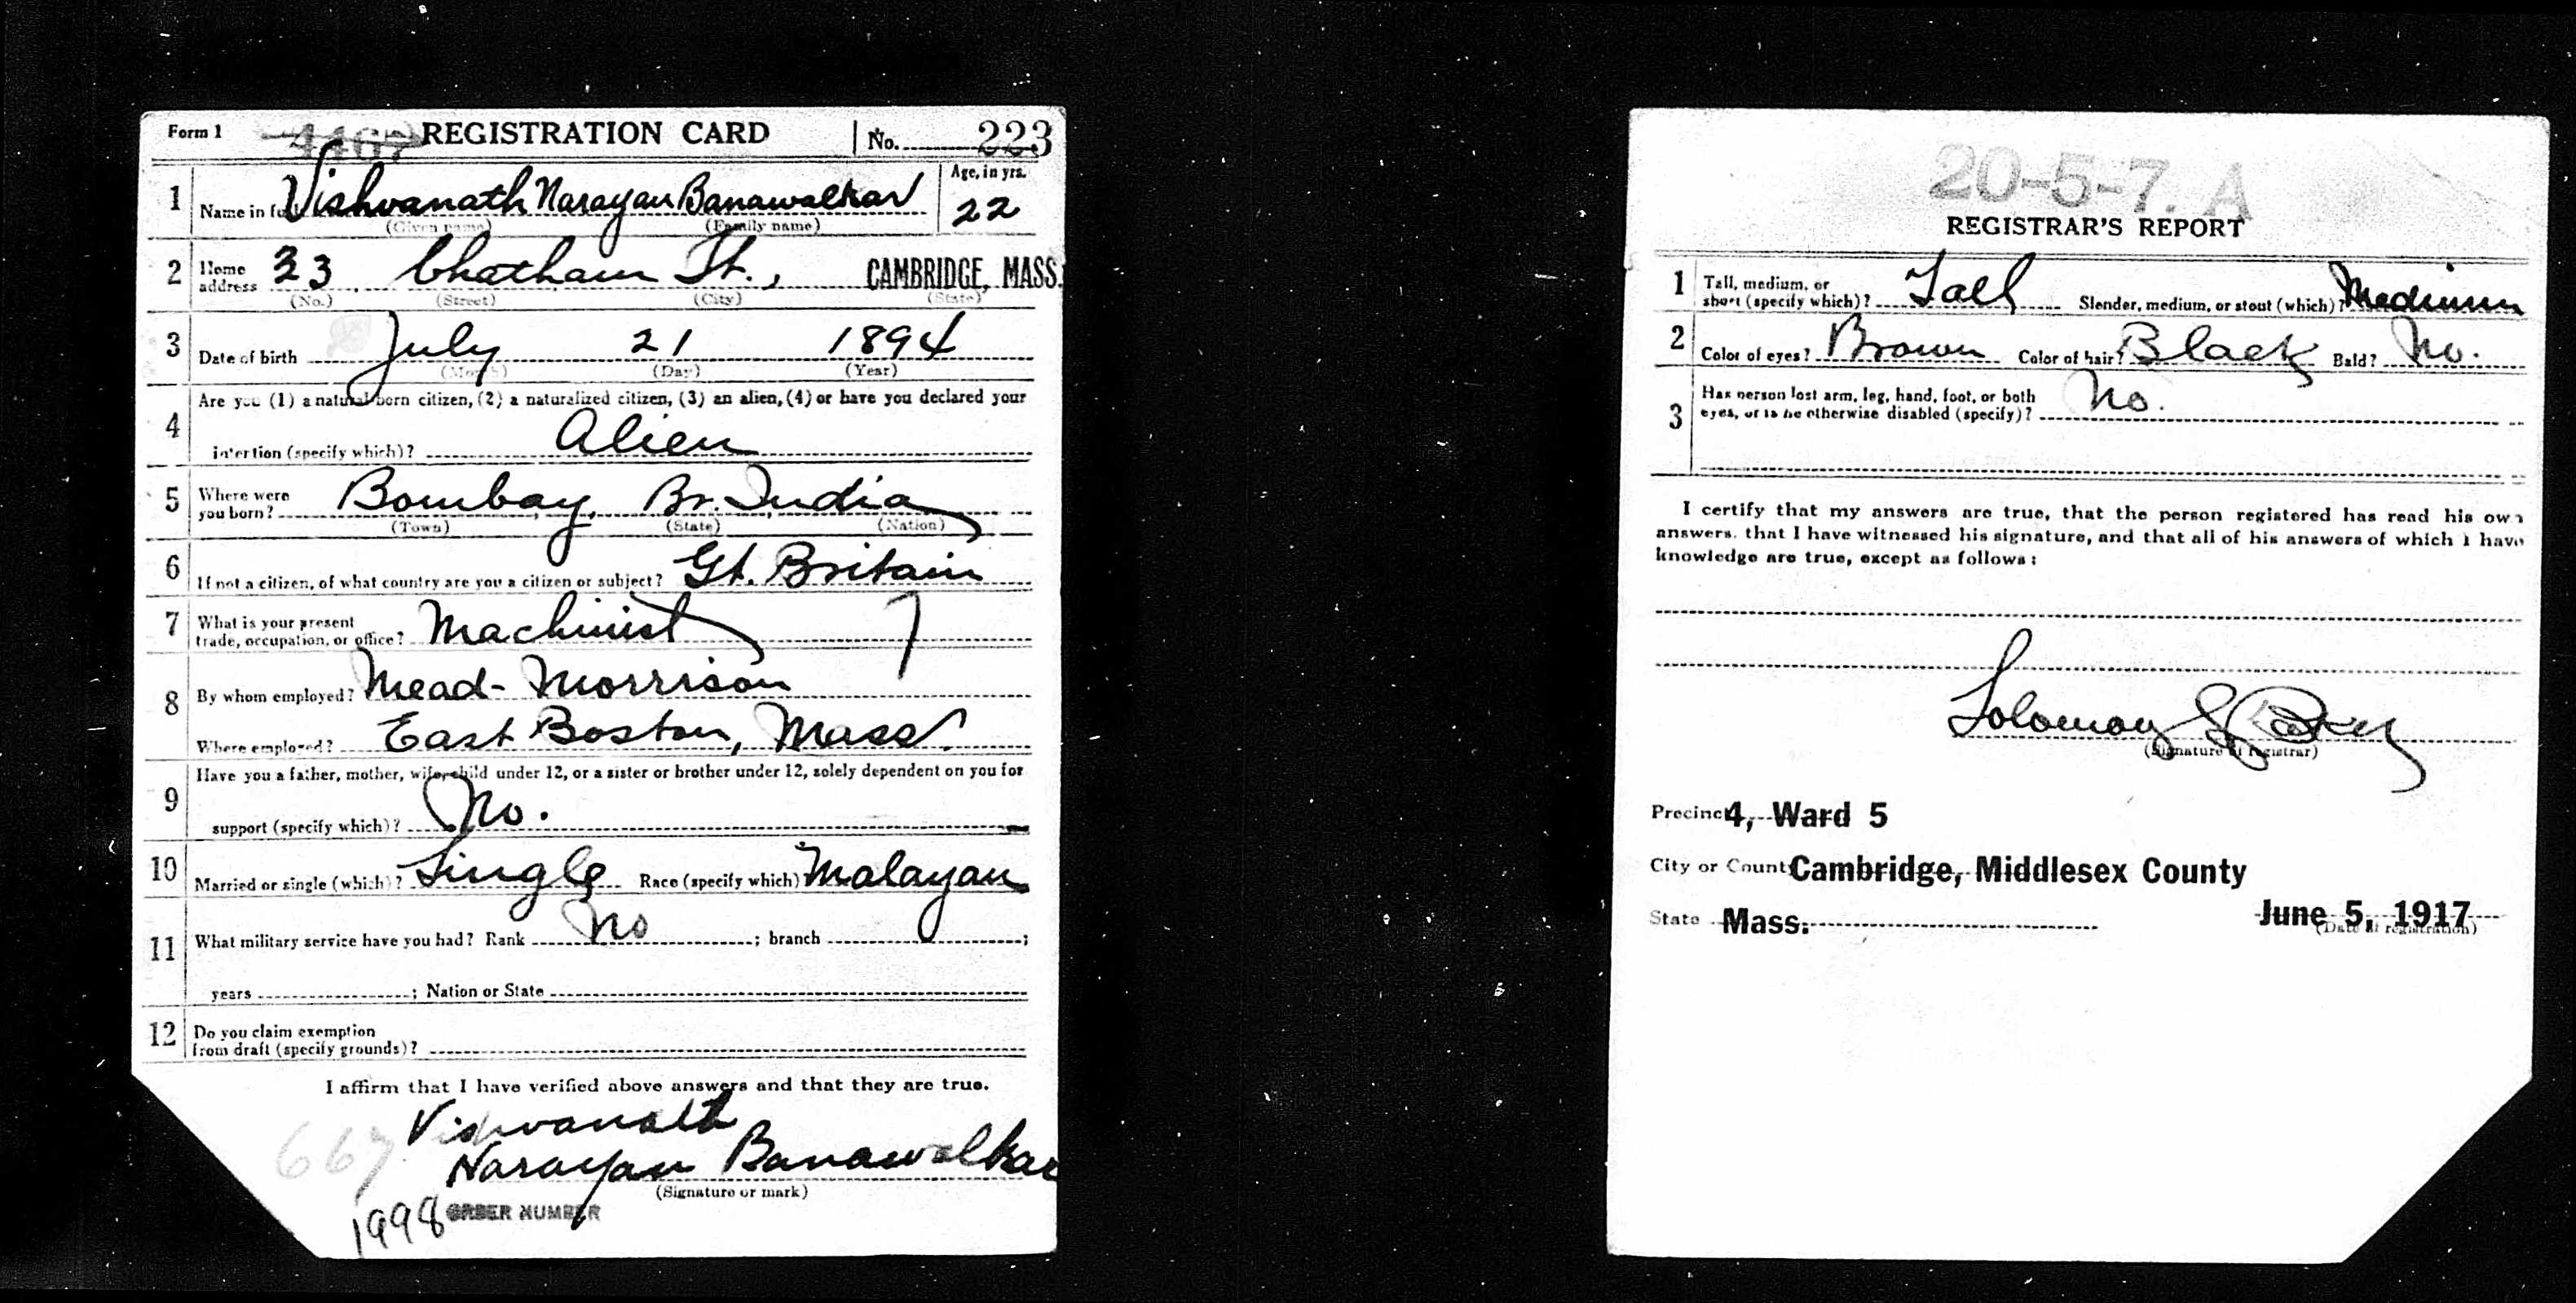 Form 1 4467 REGISTRATION CARD No. 223
1 Name in full Vishvanath Narayan Banawalkar Age, in yrs. 22
(Given name) (Family name)
2 Home address 33 Chatham St., CAMBRIDGE, MASS.
(No.) (Street) (City) (State)
3 Date of birth July 21 1894
(Month) (Day) (Year)
4 Are you (1) a natural born citizen, (2) a naturalized citizen, (3) an alien, (4) or have you declared your
intention (specify which)? Alien
5 Where were you born? Bombay, Br. India
(Town) (State) (Nation)
6 If not a citizen, of what country are you a citizen or subject? Gt. Britain
7 What is your present trade, occupation, or office? Machinist 7
8 By whom employed? Mead-Morrison
Where employed? East Boston, Mass.
9 Have you a father, mother, wife, child under 12, or a sister or brother under 12, solely dependent on you for
support (specify which)? No.
10 Married or single (which)? Single Race (specify which) Malayan
11 What military service have you had? Rank No ; branch ;
years ; Nation or State
12 Do you claim exemption
from draft (specify grounds)?
I affirm that I have verified above answers and that they are true.
Vishvanath
Narayan Banawalkar
(Signature or mark)
667
1998 ORDER NUMBER
20-5-7. A
REGISTRAR'S REPORT
1 Tall, medium, or short (specify which)? Tall Slender, medium, or stout (which)? Medium
2 Color of eyes? Brown Color of hair? Black Bald? No.
3 Has person lost arm, leg, hand, foot, or both
eyes, or is he otherwise disabled (specify)? No.
I certify that my answers are true, that the person registered has read his own
answers, that I have witnessed his signature, and that all of his answers of which I have
knowledge are true, except as follows:
Solomon
(Signature of registrar)
Precinct 4, Ward 5
City or County Cambridge, Middlesex County
State Mass. June 5, 1917
(Date of registration)